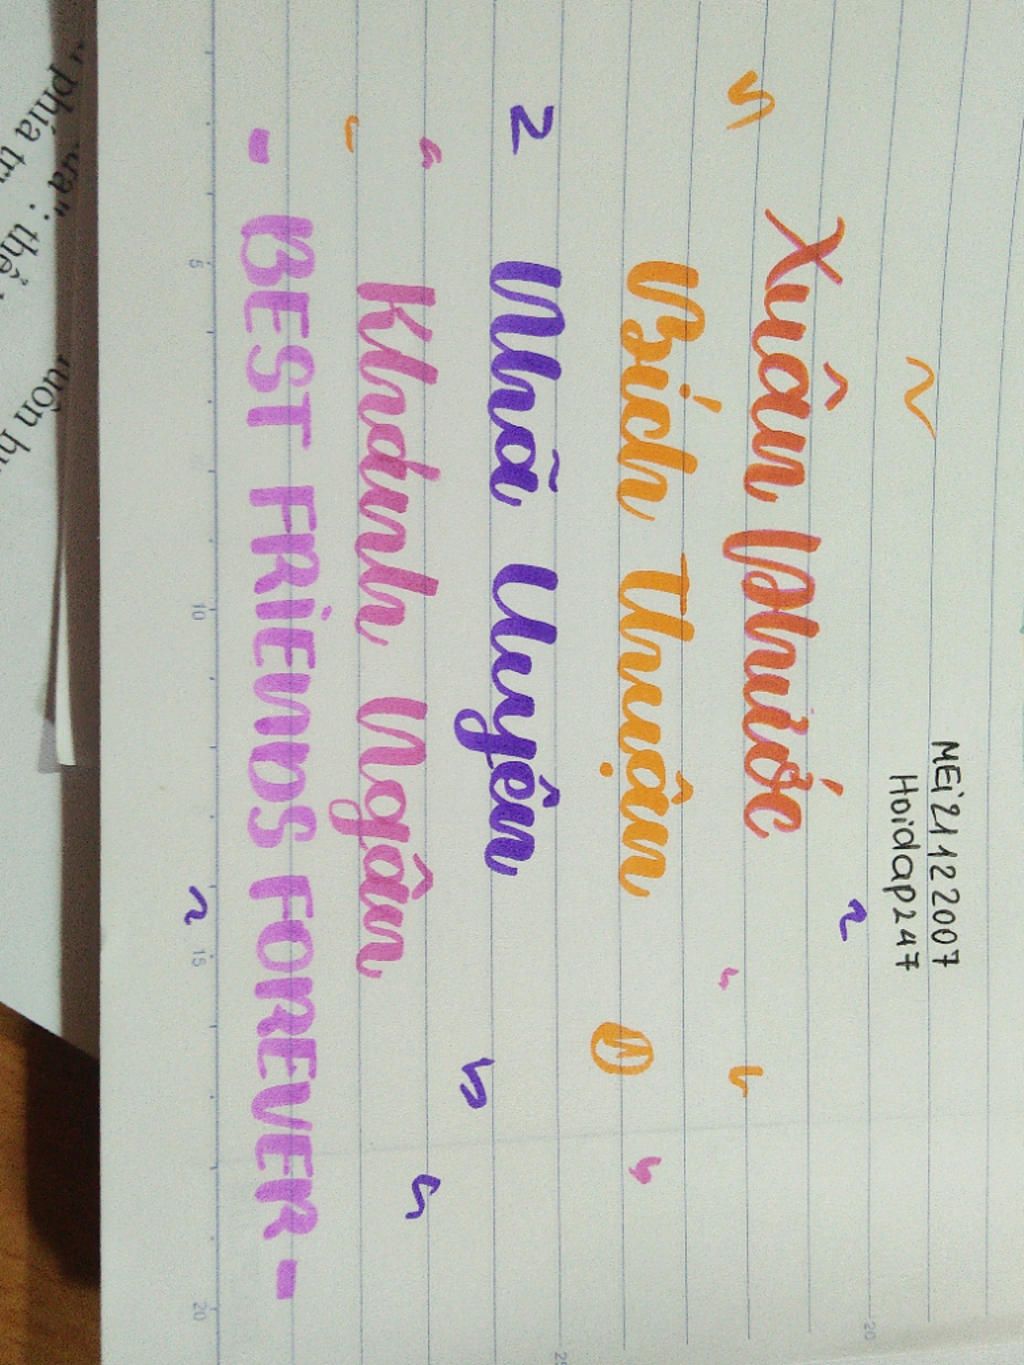 MEi21122007
Hoidap247
Xuân Phước
Bích Thuận
1
Nhã Uyên
Khánh Ngân
- BEST FRiENDS FOREVER -
5
10
15
20
20
phía